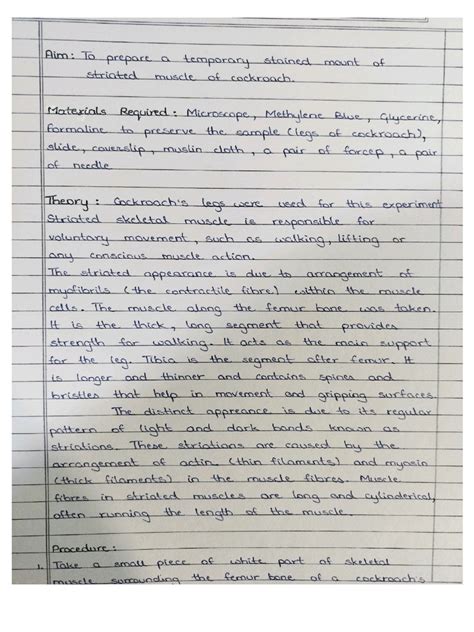 Aim: To prepare a temporary stained mount of
striated muscle of cockroach.
Materials Required: Microscope, Methylene Blue, Glycerine,
Formaline to preserve the sample (legs of cockroach),
slide, coverslip, muslin cloth, a pair of forcep, a pair
of needle
Theory: Cockroach's legs were used for this experiment
Striated skeletal muscle is responsible for
voluntary movement, such as walking, lifting or
any conscious muscle action.
The striated appearance is due to arrangement of
myofibrils (the contractile fibre) within the muscle
cells. The muscle along the femur bone was taken.
It is the thick, long segment that provides
strength for walking. It acts as the main support
for the leg. Tibia is the segment after femur. It
is longer and thinner and contains spines and
bristles that help in movement and gripping surfaces.
The distinct appreance is due to its regular
pattern of light and dark bands known as
striations. These striations are caused by the
arrangement of actin (thin filaments) and myosin
(thick filaments) in the muscle fibres. Muscle
fibres in striated muscles are long and cylinderical,
often running the length of the muscle.
Procedure:
1. Take a small piece of white part of skeletal
muscle surrounding the femur bone of a cockroach's